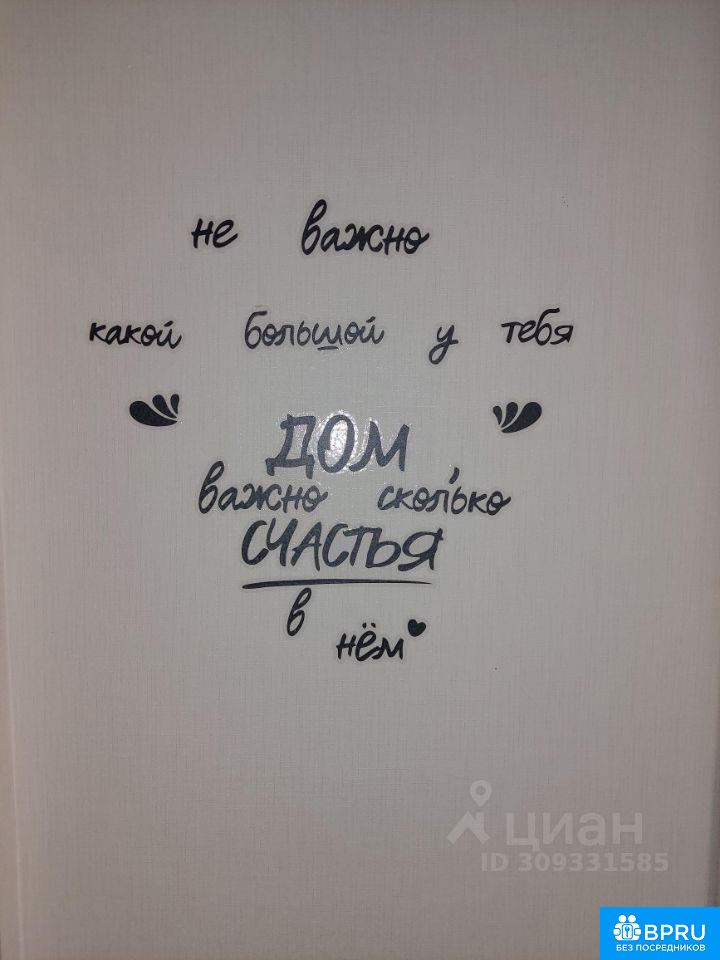 не важно
какой большой у тебя
ДОМ
важно сколько
СЧАСТЬЯ
в
нём
циан
ID 309331585
BPRU
БЕЗ ПОСРЕДНИКОВ